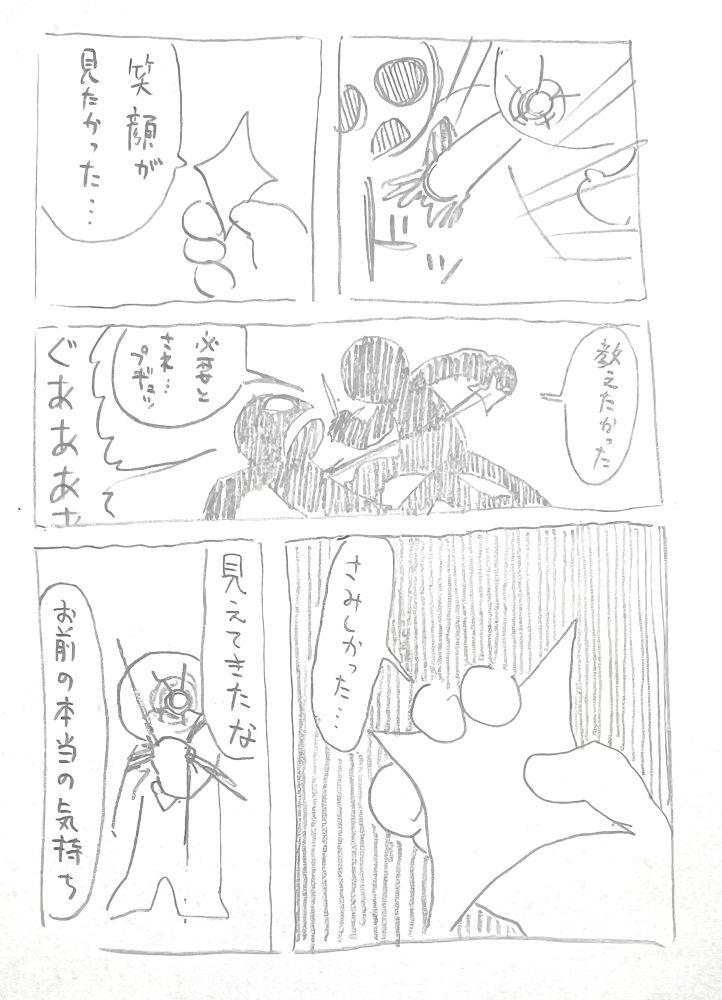 ドッ
笑顔が
見たかった…
教えたかった
必要と
され…
プギュッ
ぐあああぁ
て
さみしかった…
見えてきたな
お前の本当の気持ち